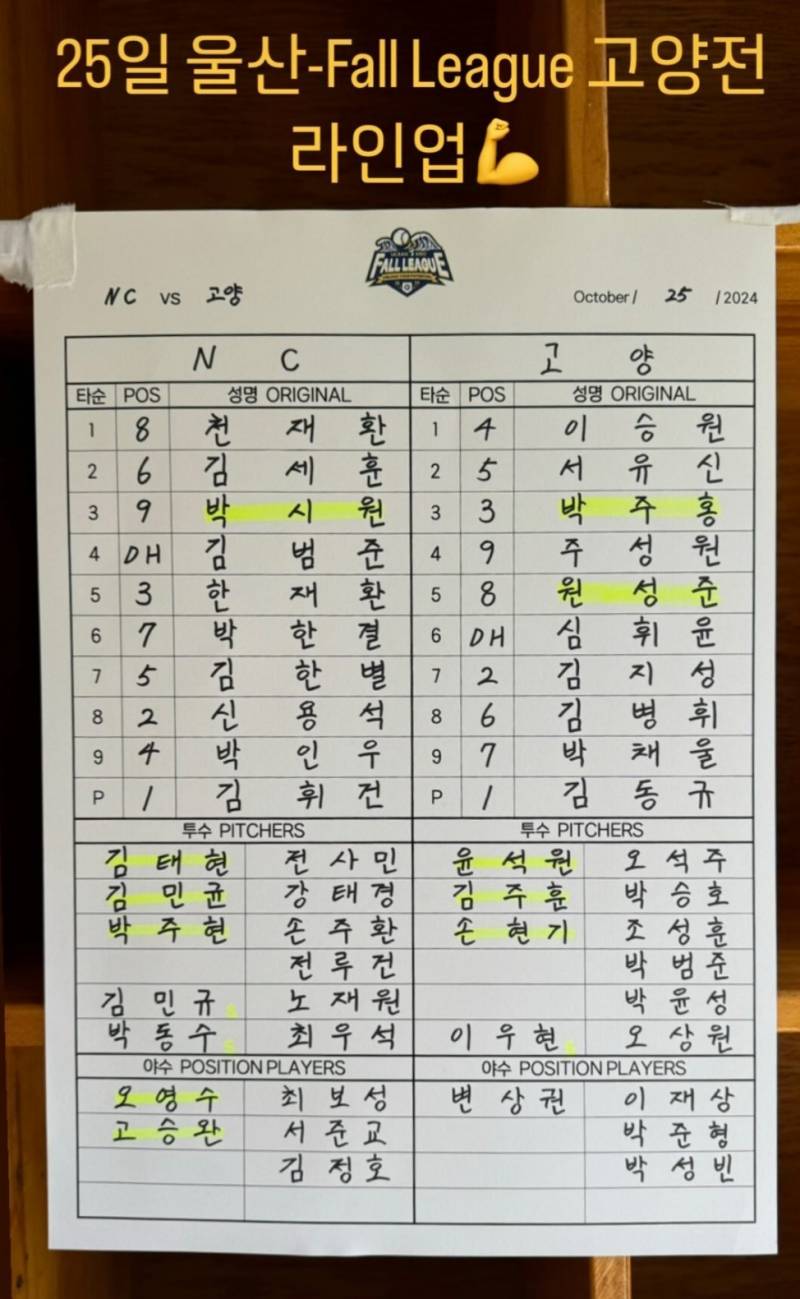 25일 울산-Fall League 고양전
라인업💪
FALL LEAGUE
NC vs 고양 October / 25 / 2024
N C 고 양
타순 POS 성명 ORIGINAL 타순 POS 성명 ORIGINAL
1 8 천재환 1 4 이승원
2 6 김세훈 2 5 서유신
3 9 박시원 3 3 박주홍
4 DH 김범준 4 9 주성원
5 3 한재환 5 8 원성준
6 7 박한결 6 DH 심휘윤
7 5 김한별 7 2 김지성
8 2 신용석 8 6 김병휘
9 4 박인우 9 7 박채울
P 1 김휘건 P 1 김동규
투수 PITCHERS 투수 PITCHERS
김태현 전사민 윤석원 오석주
김민균 강태경 김주훈 박승호
박주현 손주환 손현기 조성훈
전루건 박범준
김민규 s 노재원 박윤성
박동수 s 최우석 이우현 s 오상원
야수 POSITION PLAYERS 야수 POSITION PLAYERS
오영수 최보성 변상권 이재상
고승완 서준교 박준형
김정호 박성빈